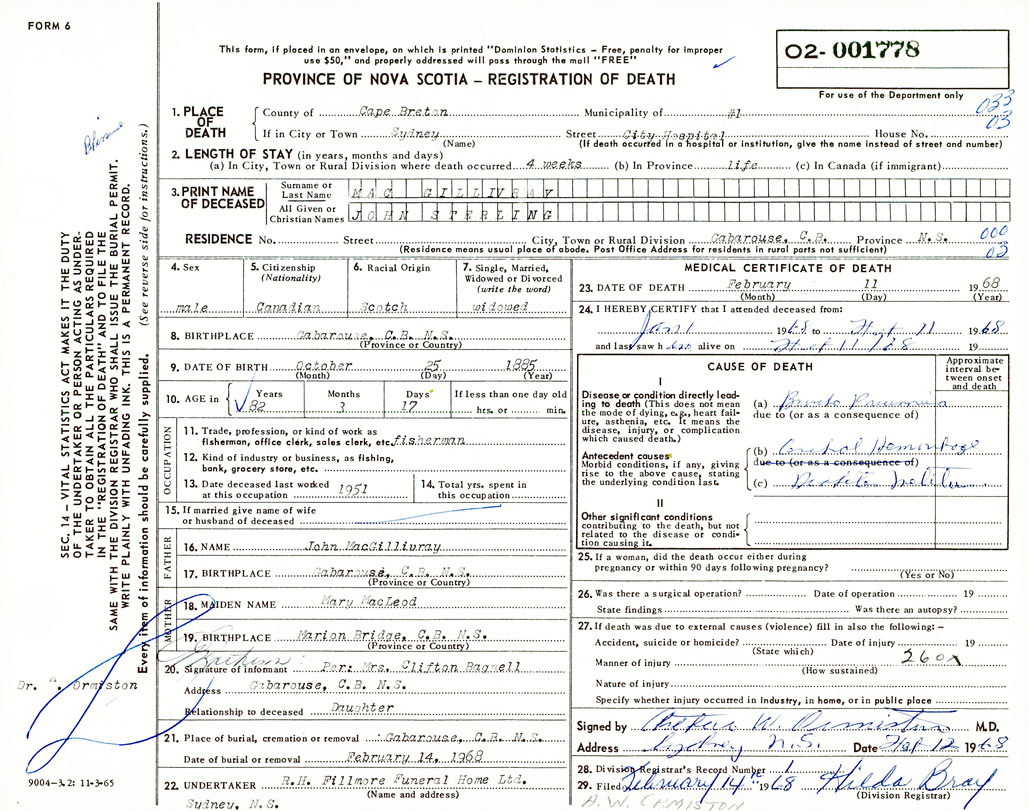 FORM 6
This form, if placed in an envelope, on which is printed "Dominion Statistics – Free, penalty for improper
use $50," and properly addressed will pass through the mail "FREE"
PROVINCE OF NOVA SCOTIA – REGISTRATION OF DEATH
O2- 001778
For use of the Department only
033
03
1. PLACE OF DEATH County of Cape Breton Municipality of #1
If in City or Town Sydney Street City Hospital House No.
(Name) (If death occurred in a hospital or institution, give the name instead of street and number)
2. LENGTH OF STAY (in years, months and days)
(a) In City, Town or Rural Division where death occurred 4 weeks (b) In Province life (c) In Canada (if immigrant)
3. PRINT NAME OF DECEASED Surname or Last Name MAC GILLIVRAY
All Given or Christian Names JOHN STERLING
000
RESIDENCE No. Street City, Town or Rural Division Gabarouse, C.B. Province N.S.
(Residence means usual place of abode. Post Office Address for residents in rural parts not sufficient) 03
4. Sex male
5. Citizenship (Nationality) Canadian
6. Racial Origin Scotch
7. Single, Married, Widowed or Divorced (write the word) widowed
8. BIRTHPLACE Gabarouse, C.B. N.S.
(Province or Country)
9. DATE OF BIRTH October 25 1885
(Month) (Day) (Year)
10. AGE in Years Months Days If less than one day old
82 3 17 hrs. or min.
OCCUPATION
11. Trade, profession, or kind of work as
fisherman, office clerk, sales clerk, etc. fisherman
12. Kind of industry or business, as fishing,
bank, grocery store, etc.
13. Date deceased last worked at this occupation 1951
14. Total yrs. spent in this occupation
15. If married give name of wife
or husband of deceased
FATHER
16. NAME John MacGillivray
17. BIRTHPLACE Gabarouse, C.B. N.S.
(Province or Country)
MOTHER
18. MAIDEN NAME Mary MacLeod
19. BIRTHPLACE Marion Bridge, C.B. N.S.
(Province or Country)
20. Signature of informant Per: Mrs. Clifton Bagnell
Address Gabarouse, C.B. N.S.
Relationship to deceased Daughter
21. Place of burial, cremation or removal Gabarouse, C.B. N.S.
Date of burial or removal February 14, 1968
22. UNDERTAKER R.H. Fillmore Funeral Home Ltd.
(Name and address)
Sydney, N.S.
MEDICAL CERTIFICATE OF DEATH
23. DATE OF DEATH February 11 1968
(Month) (Day) (Year)
24. I HEREBY CERTIFY that I attended deceased from:
Jan 1 1968 to 11 1968
and last saw h im alive on 11/68 19
CAUSE OF DEATH
Approximate interval between onset and death
I
Disease or condition directly leading to death (This does not mean the mode of dying, e.g., heart failure, asthenia, etc. It means the disease, injury, or complication which caused death.)
(a) Broncho Pneumonia
due to (or as a consequence of)
Antecedent causes
Morbid conditions, if any, giving rise to the above cause, stating the underlying condition last.
(b) Cerebral Hemorrhage
due to (or as a consequence of)
(c) Diabetes
II
Other significant conditions
contributing to the death, but not related to the disease or condition causing it.
25. If a woman, did the death occur either during
pregnancy or within 90 days following pregnancy?
(Yes or No)
26. Was there a surgical operation? Date of operation 19
State findings Was there an autopsy?
27. If death was due to external causes (violence) fill in also the following: –
Accident, suicide or homicide? Date of injury 19
(State which)
Manner of injury 260X
(How sustained)
Nature of injury
Specify whether injury occurred in industry, in home, or in public place
Signed by W. Ormiston M.D.
Address Sydney N.S. Date Feb 12 1968
28. Division Registrar's Record Number
29. Filed February 14th 1968 Hilda Bray
(Division Registrar)
A.W. ORMISTON
SEC. 14 – VITAL STATISTICS ACT MAKES IT THE DUTY
OF THE UNDERTAKER OR PERSON ACTING AS UNDER-
TAKER TO OBTAIN ALL THE PARTICULARS REQUIRED
IN THE "REGISTRATION OF DEATH" AND TO FILE THE
SAME WITH THE DIVISION REGISTRAR WHO SHALL ISSUE THE BURIAL PERMIT.
WRITE PLAINLY WITH UNFADING INK. THIS IS A PERMANENT RECORD.
Every item of information should be carefully supplied. (See reverse side for instructions.)
Dr. Ormiston
9004-3.2: 11-3-65